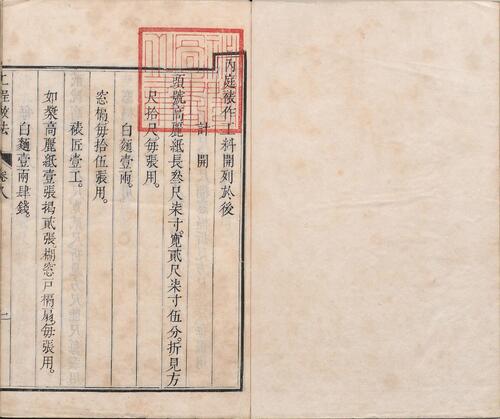 內庭裱作工料開列於後
計開
頭號高麗紙長叁尺柒寸。寬貳尺柒寸伍分。折見方
尺拾尺。每張用。
白麵壹兩。
窓槅每拾伍張用。
裱匠壹工。
如裝高麗紙壹張揭貳張。糊窓戸槅扇。每張用。
白麵壹兩肆錢。
工程做法
卷八
一